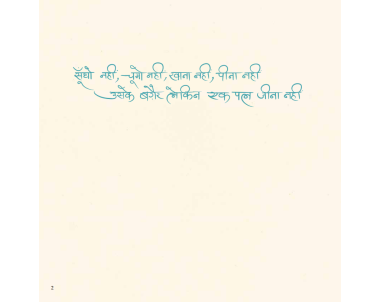 सूँघो नही, चूगो नही, खाना नही, पीना नही
उसके बग़ैर लेकिन एक पल जीना नही
2